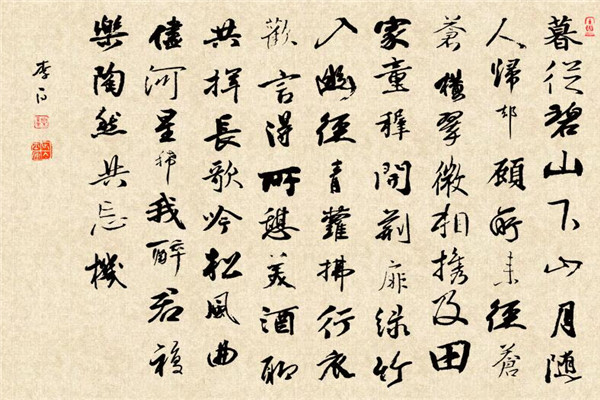 暮從碧山下山月隨
人歸却顧所來徑蒼
蒼橫翠微相攜及田
家童稺開荊扉綠竹
入幽徑青蘿拂行衣
歡言得所憩美酒聊
共揮長歌吟松風曲
儘河星稀我醉君複
樂陶然共忘機
李白